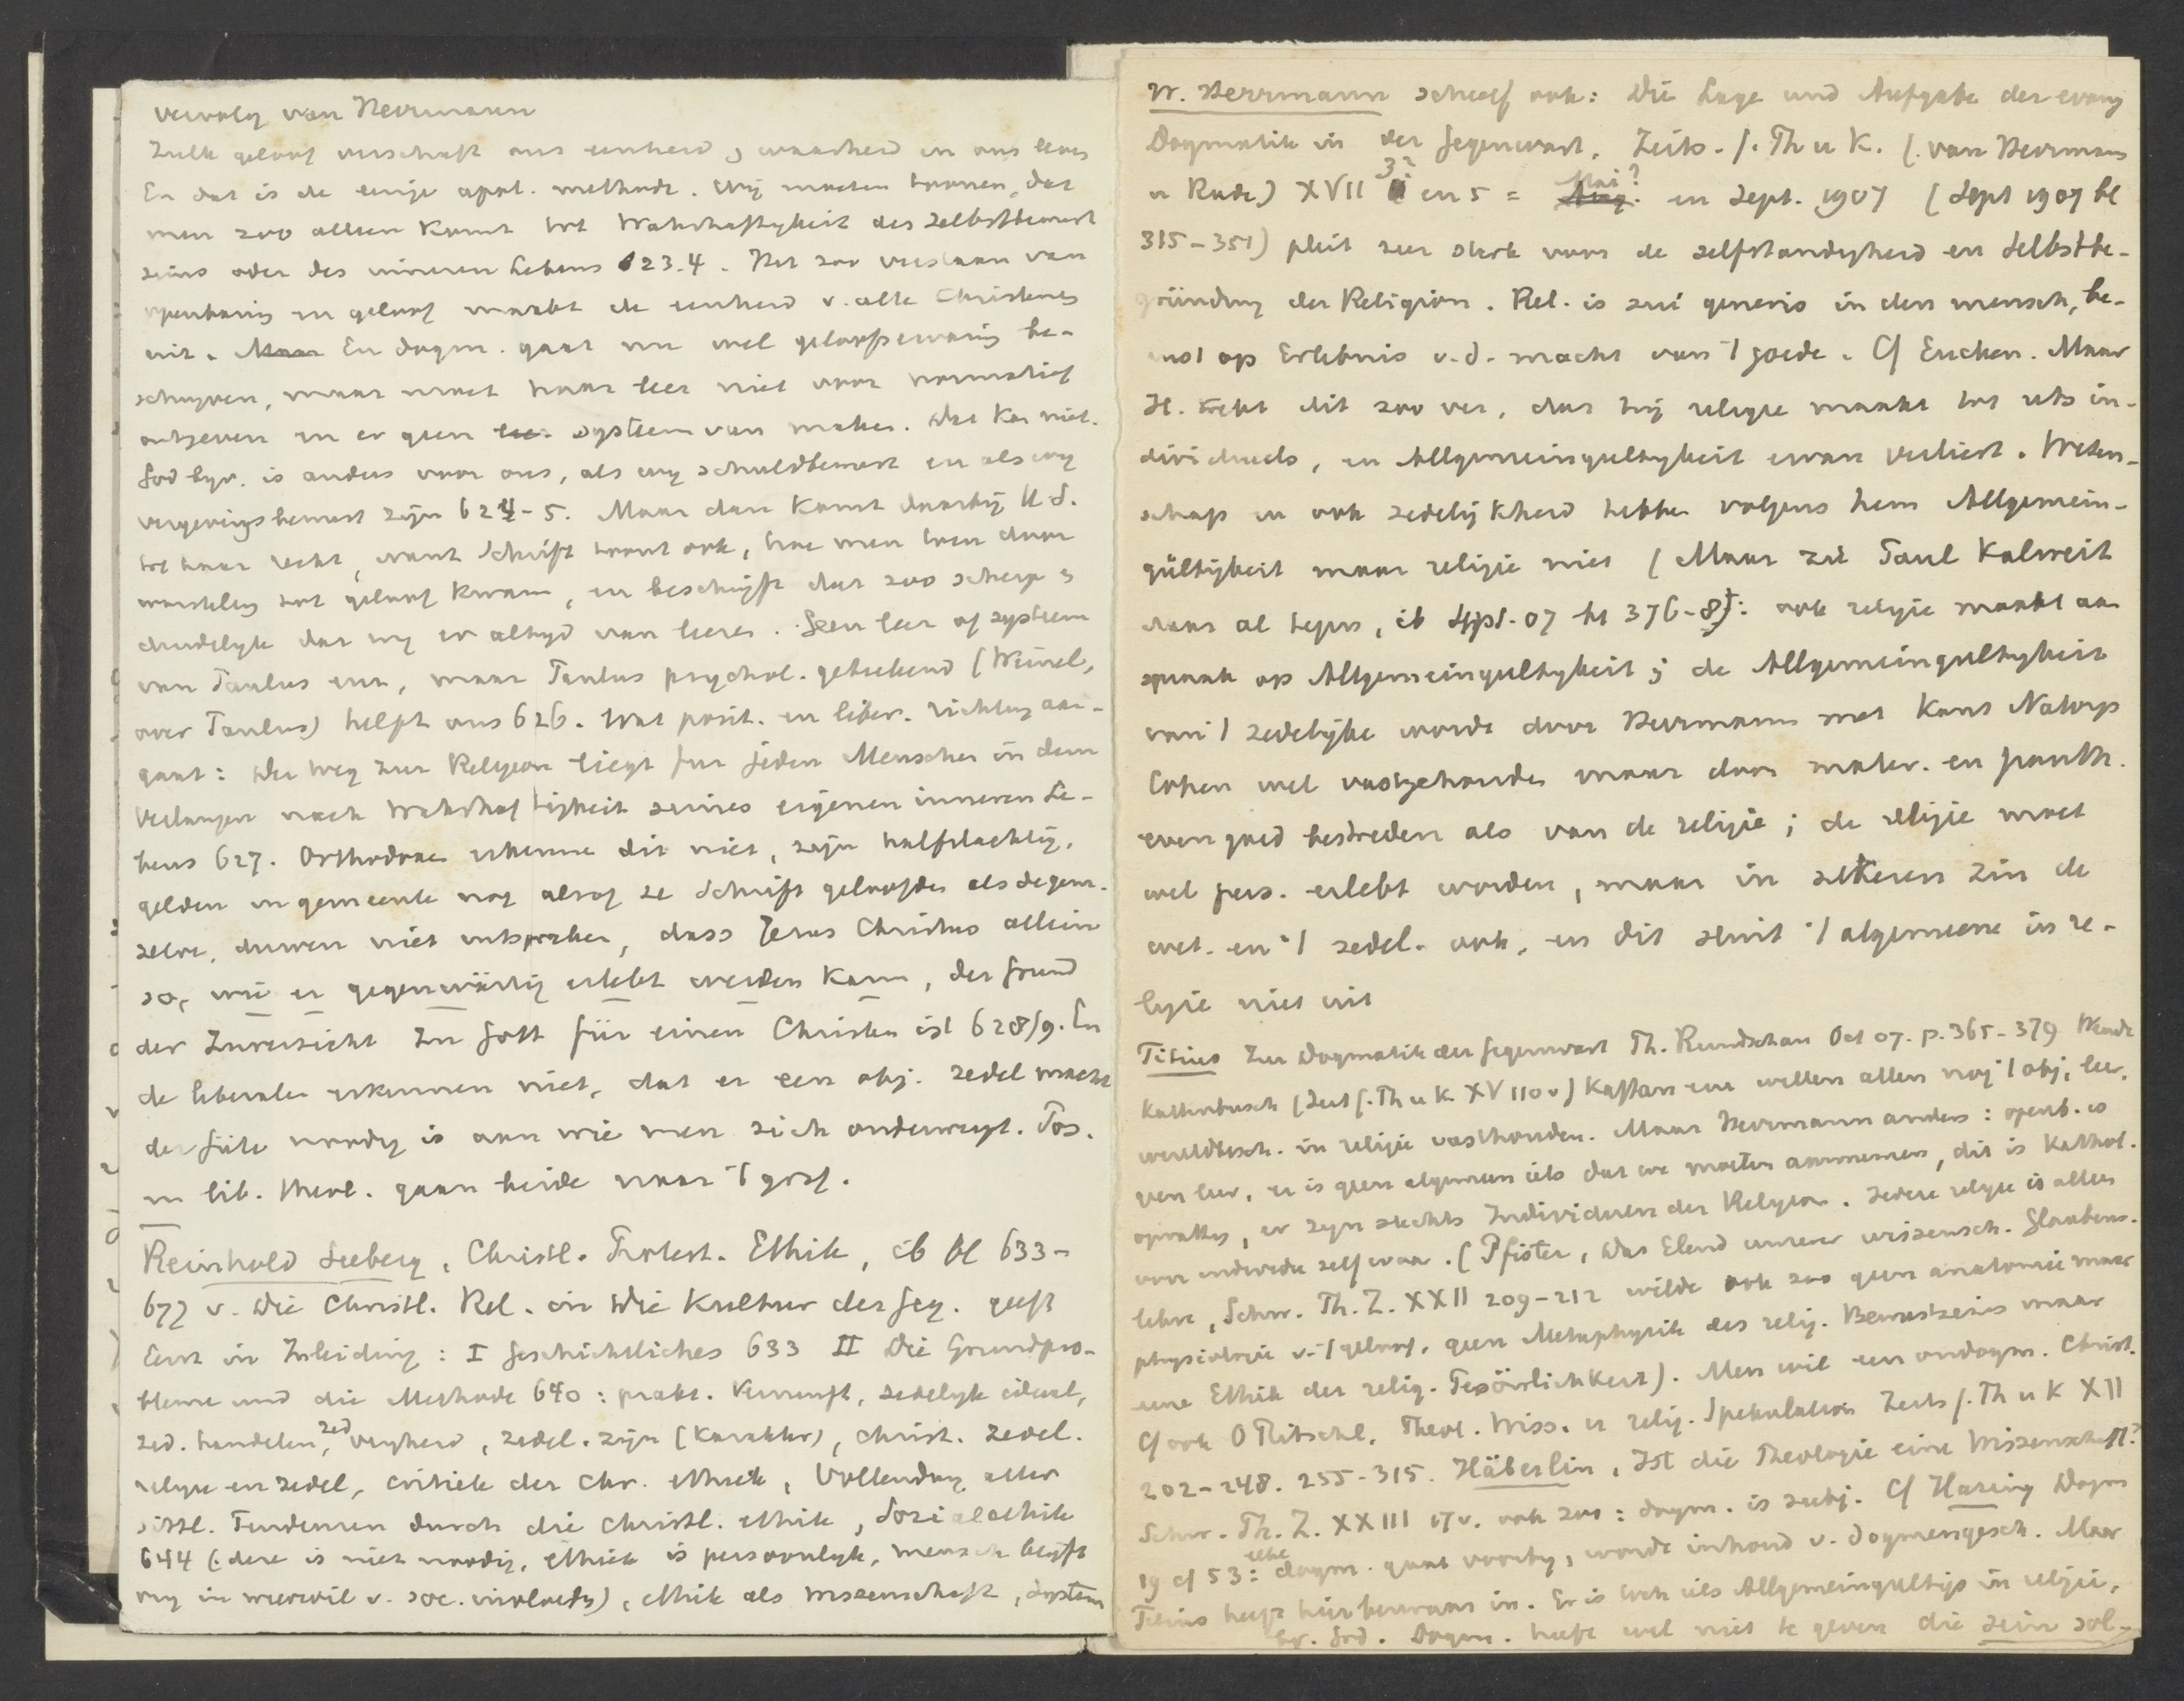 vervolg van Herrmann
Zulk geloof verschaft ons eenheid, waarheid in ons leven
En dat is de eenige apol. methode. Wij moeten toonen, dat
men zoo alleen komt tot Wahrhaftigkeit des Selbstbewusst
seins oder des inneren Lebens 623.4. Het zoo verstaan van
openbaring en geloof maakt de eenheid v. alle Christenen
uit. En dogm. gaat nu wel geloofservaring be-
schrijven, maar moet haar leer niet voor normatief
uitgeven en er geen systeem van maken. Dat kan niet.
God bijv. is anders voor ons, als wij schuldbewust en als wij
vergevingsbewust zijn 624-5. Maar dan komt daarbij H.S.
tot haar recht, want Schrift toont ook, hoe men toen door
worsteling tot geloof kwam, en beschrijft dat zoo scherp en
duidelijk dat wij er altijd van leeren. Geen leer of systeem
van Paulus enz, maar Paulus psychol. getekend (Weinel,
over Paulus) helpt ons 626. Wat posit. en liber. richting aan-
gaat: der Weg zur Religion liegt für jeden Menschen in dem
Verlangen nach Wahrhaftigkeit seines eigenen inneren Le-
bens 627. Orthodoxen erkennen dit niet, zijn halfslachtig,
gelden in gemeente nog alsof ze Schrift geloofden als degene
zelve, durven niet uitspreken, dass Jesus Christus allein
so, wie er gegenwärtig erlebt werden kann, der Grund
der Zuversicht zu Gott für einen Christen ist 628/9. En
de liberalen erkennen niet, dat er een obj. zedel macht
der Güte noodig is aan wie men zich onderwerpt. Pos.
en lib. theol. gaan beide naar 't graf.
Reinhold Seeberg, Christl. Protest. Ethik, ib bl 633-
677 v. Die Christl. Rel. in Die Kultur der Geg. geeft
Eerst in Inleiding: I Geschichtliches 633 II Die Grundpro-
bleme und die Methode 640: prakt. Vernunft, zedelijk ideaal,
zed. handelen, zed vrijheid, zedel. zijn (karakter), christ. zedel.
religie en zedel, critiek der chr. ethiek, Vollendung aller
sittl. Tendenzen durch die christl. ethik, Sozialethik
644 (deze is niet noodig, ethiek is persoonlijk, mensch blijft
vrij in weerwil v. soc. invloeden), ethik als Wissenschaft, System
W. Herrmann schreef ook: Die Lage und Aufgabe der evang
Dogmatik in der Gegenwart, Zeits. f. Th u K. (van Herrmann
u Rade) XVII 3? en 5 = Mai? en Sept. 1907 (Sept 1907 bl
315-351) pleit zeer sterk voor de zelfstandigheid en Selbstbe-
gründung der Religion. Rel. is sui generis in den mensch, be-
rust op Erlebnis v.d. macht van 't goede. Cf Eucken. Maar
H. trekt dit zoo ver, dat hij religie maakt tot iets in-
dividueels, en Allgemeingültigkeit ervan verliest. Weten-
schap en ook zedelijkheid hebben volgens hem Allgemein-
gültigkeit maar religie niet (Maar zie Paul Kalweit
daar al tegen, ib Sept. 07 bl 376-8): ook religie maakt aan
spraak op Allgemeingültigkeit; de Allgemeingültigkeit
van 't zedelijke wordt door Herrmann met Kant Natorp
Cohen wel vastgehouden maar door mater. en panth.
even goed bestreden als van de religie; de religie moet
wel pers. erlebt worden, maar in zekeren zin de
wet. en 't zedel. ook, en dit sluit 't algemeene in re-
ligie niet uit
Titius Zur Dogmatik der Gegenwart Th. Rundschau Oct 07. p. 365-379 Wendt
Kattenbusch (Zeit f. Th u K. XV 110 v) Kaftan enz willen allen nog 't obj, leer,
wereldbesch. in religie vasthouden. Maar Herrmann anders: openb. is
geen leer, er is geen algemeen iets dat we moeten aannemen, dit is Kathol.
opvatting, er zijn slechts Individuen der Religion. Iedere religie is alleen
voor iedereen zelf waar. (Pfister, Das Elend unserer wissensch. Glaubens-
lehre, Schw. Th. Z. XXII 209-212 wilde ook zoo geen anatomie maar
physiologie v. 't geloof, geen Metaphysik des relig. Bewustseins maar
eene Ethik der relig. Persönlichkeit). Men wil een ondogm. Christ.
Cf ook O Ritschl, Theol. Wiss. u relig. Spekulation Zeits f. Th u K XII
202-248. 255-315. Häberlin, Ist die Theologie eine Wissenschaft?
Schw. Th. Z. XXIII 17 v. ook zoo: dogm. is subj. Cf Haering Dogm
19 cf 53: elke dogm. gaat voorbij, wordt inhoud v. dogmengesch. Maar
Titius heeft hier bezwaar in. Er is toch iets Allgemeingültigs in religie,
bv. God. Dogm. heeft wel niet te geven die sein sol-